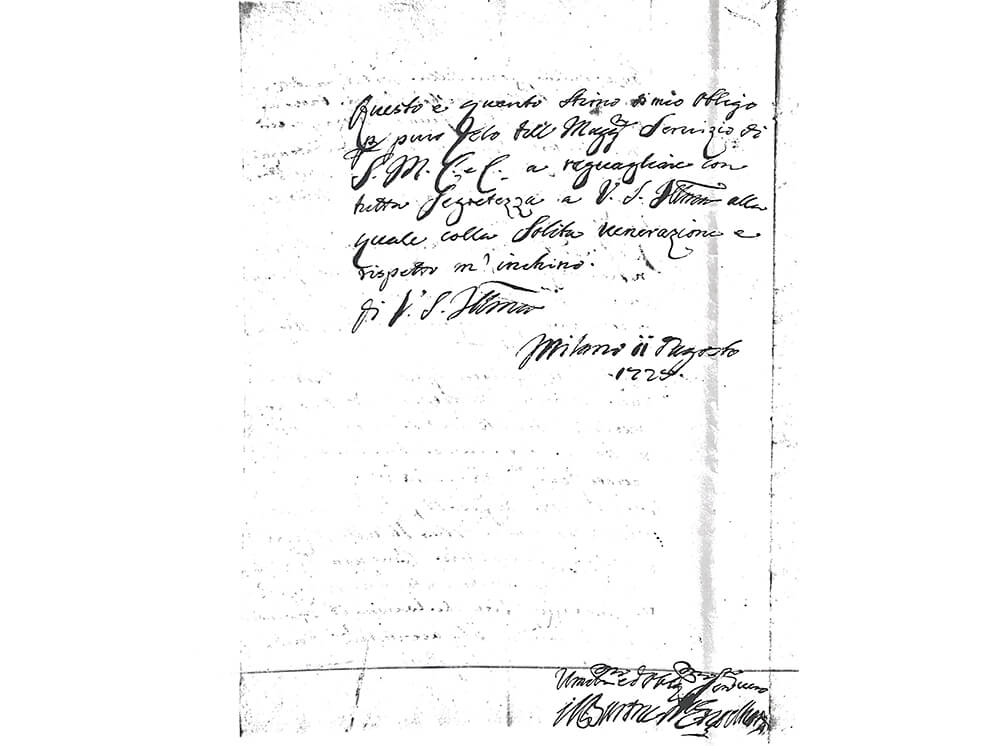 Questo è quanto stimo mio obligo
puro Zelo dell Magg.r Seruizio di
S. M. C. e C. a raguagliare con
tutta Segretezza a V. S. Ill.ma alla
quale colla Solita uenerazione e
rispetto m' inchino.
di V. S. Ill.ma
Milano ii Agosto
Seruitore